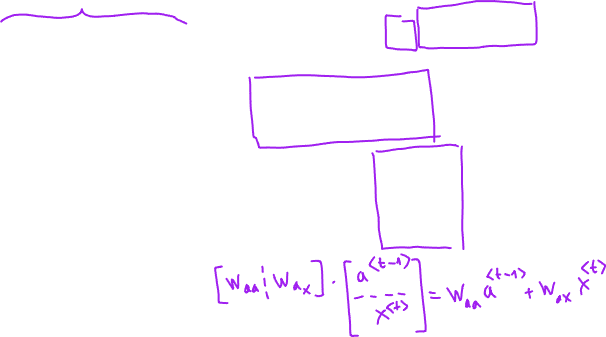 [W_aa ¦ W_ax] · [a^<t-1> / x^<t>] = W_aa a^<t-1> + W_ax x^<t>